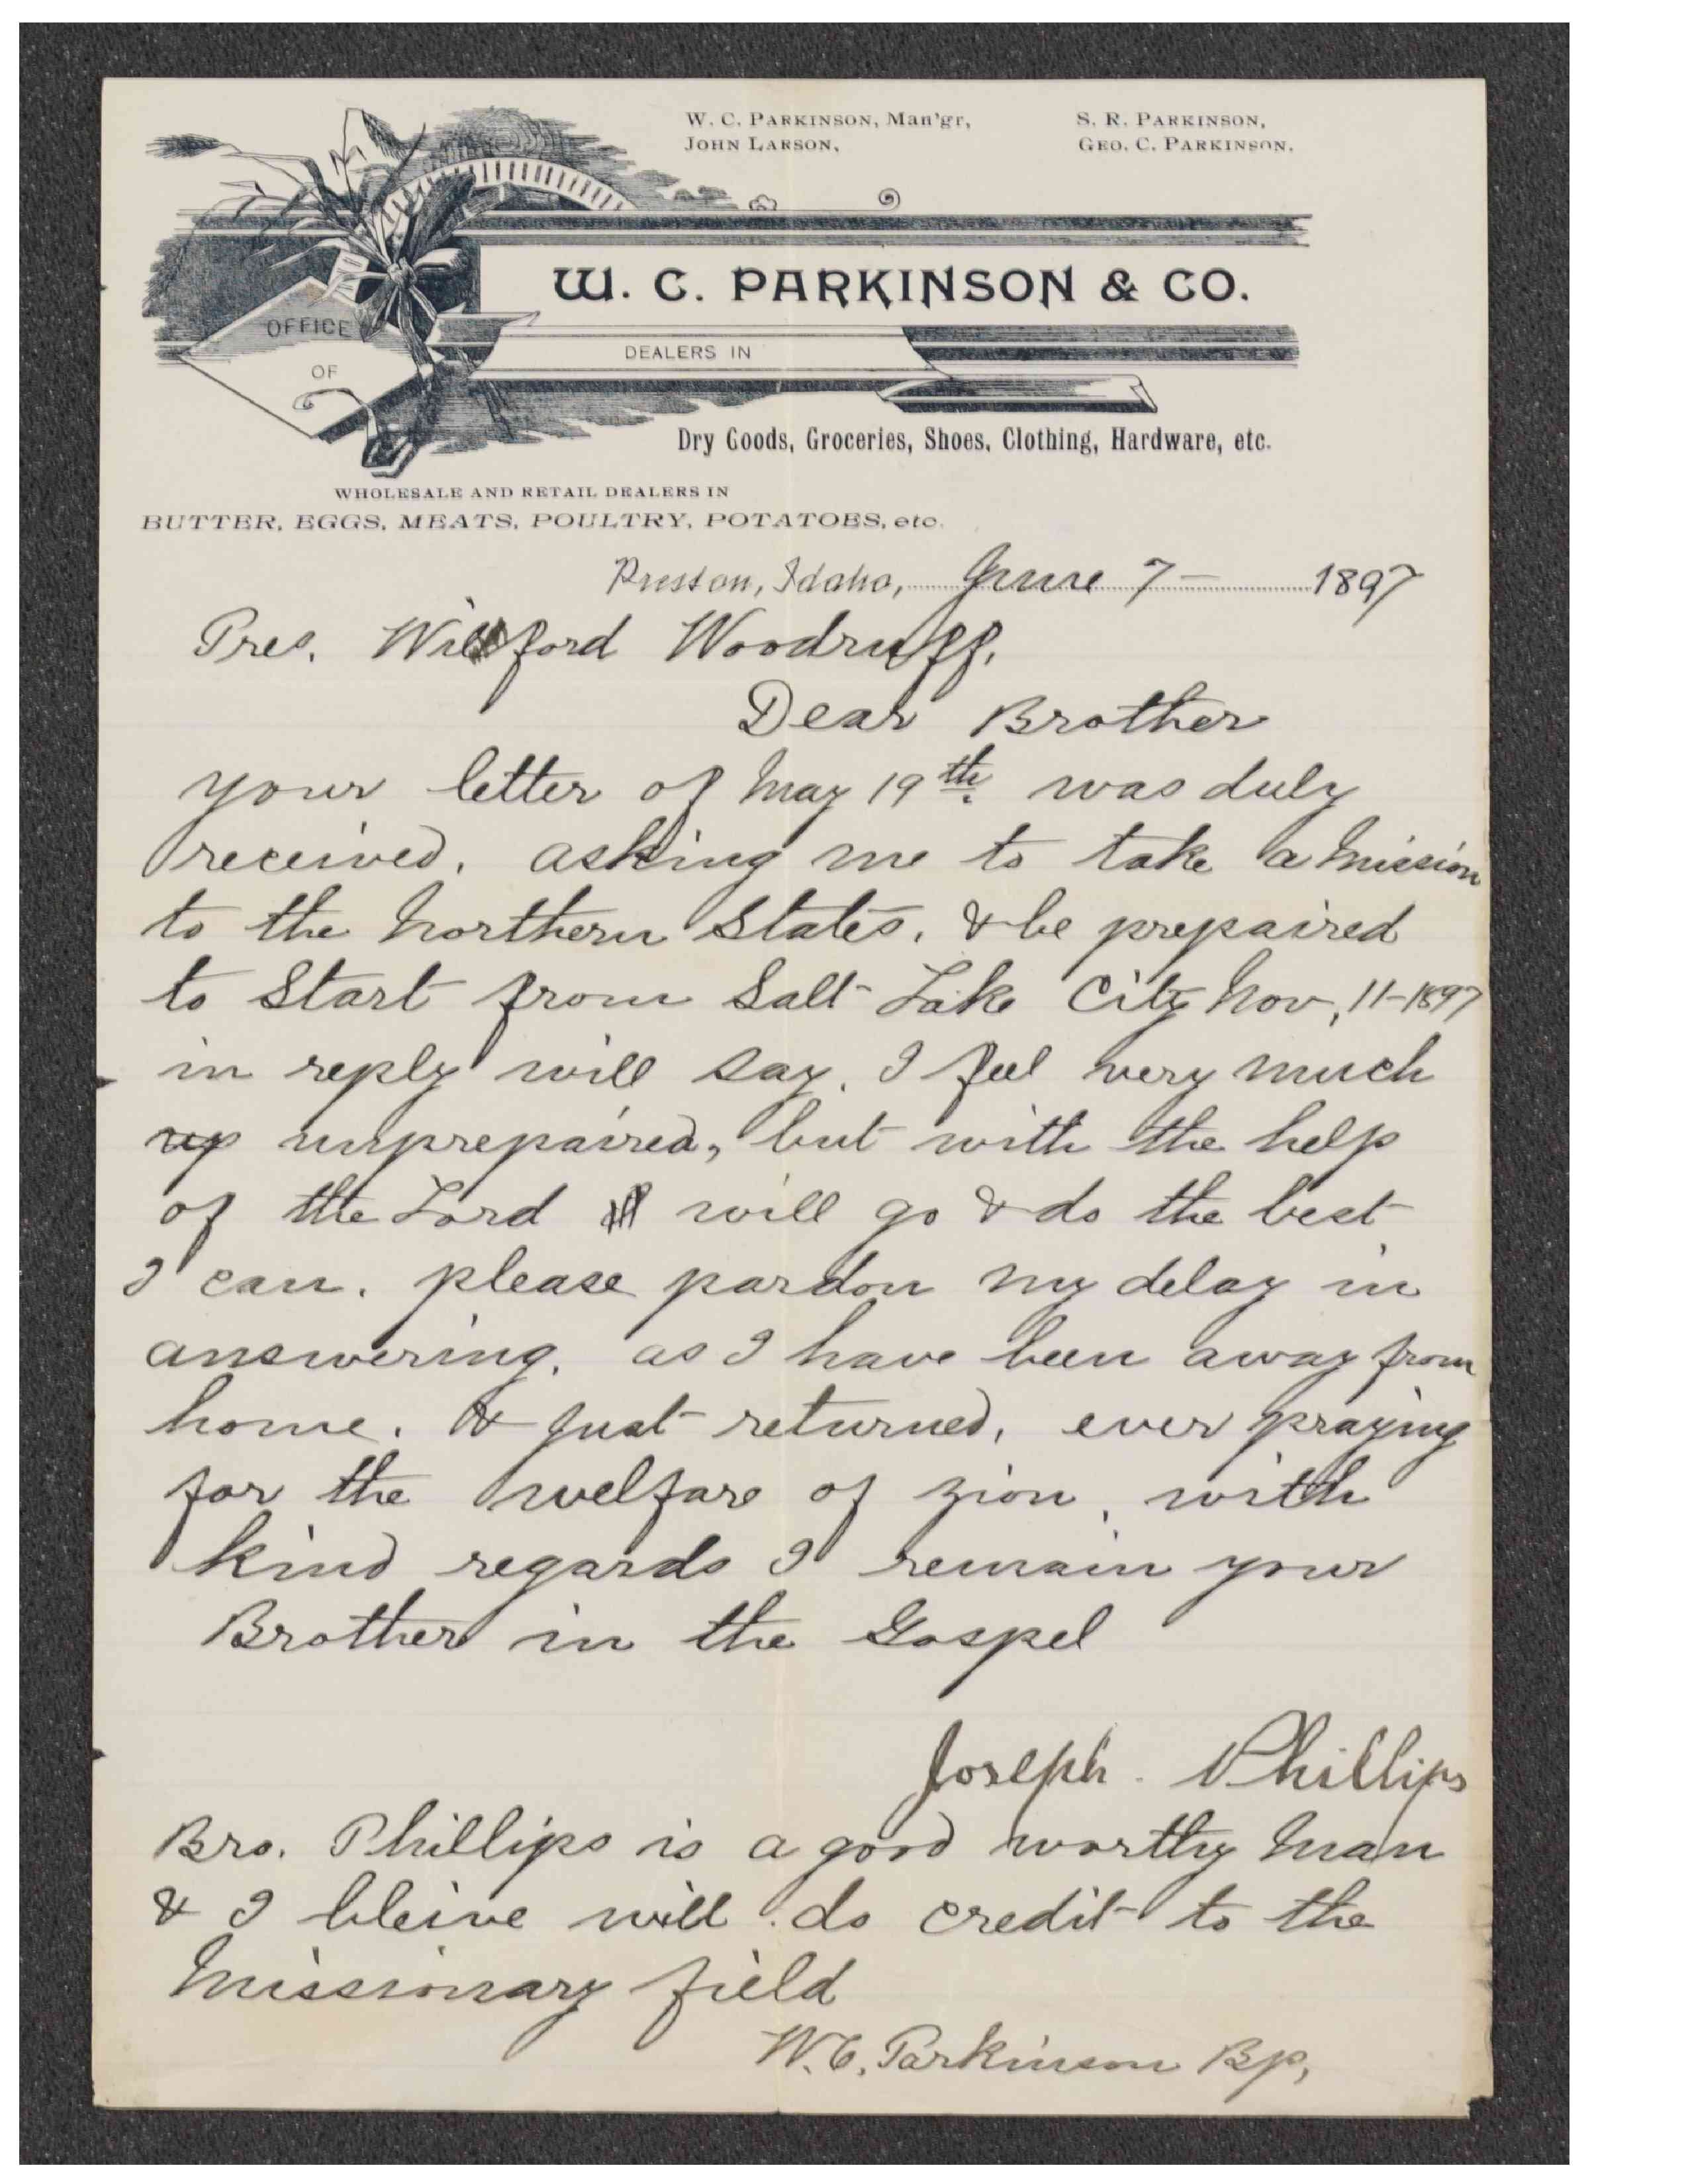 W. C. PARKINSON, Man'gr,
JOHN LARSON,
S. R. PARKINSON,
GEO. C. PARKINSON.
OFFICE
OF
W. C. PARKINSON & CO.
DEALERS IN
Dry Goods, Groceries, Shoes, Clothing, Hardware, etc.
WHOLESALE AND RETAIL DEALERS IN
BUTTER, EGGS, MEATS, POULTRY, POTATOES, etc.
Preston, Idaho, June 7 – 1897
Pres. Wilford Woodruff.
Dear Brother
your letter of May 19th. was duly
received. asking me to take a Mission
to the Northern States. & be prepaired
to Start from Salt Lake City Nov, 11-1897
in reply will say. I feel very much
up unprepaired, but with the help
of the Lord I will go & do the best
I can. please pardon my delay in
answering. as I have been away from
home. & Just returned, ever praying
for the welfare of zion, with
kind regards I remain your
Brother in the Gospel
Joseph. Phillips
Bro. Phillips is a good worthy Man
& I bleive will do credit to the
Missionary field
W. C. Parkinson Bp,